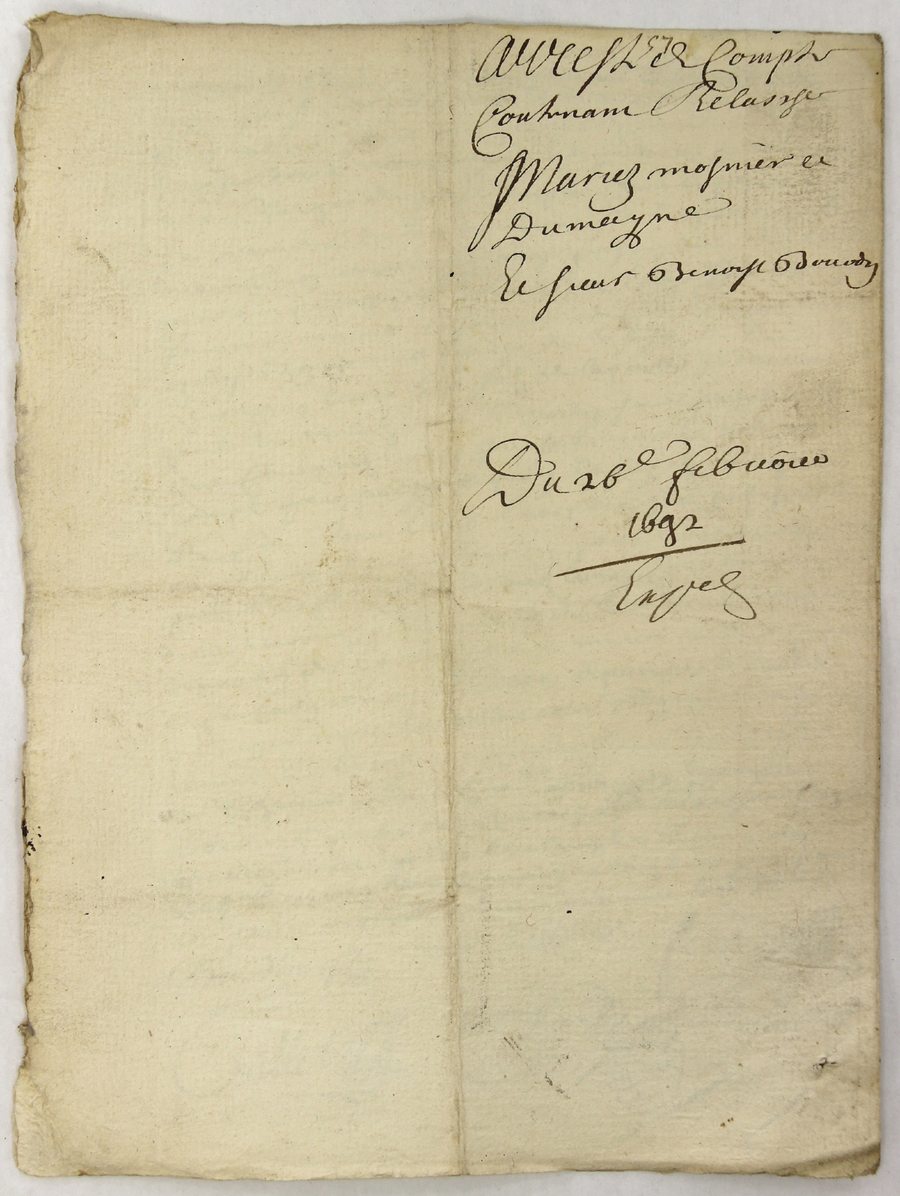 Arrest de Compte
Contenant Relaxsse
Mariez mosnier et
Dumayne
Et sieur Benoist
Du 26e febvrier
1692